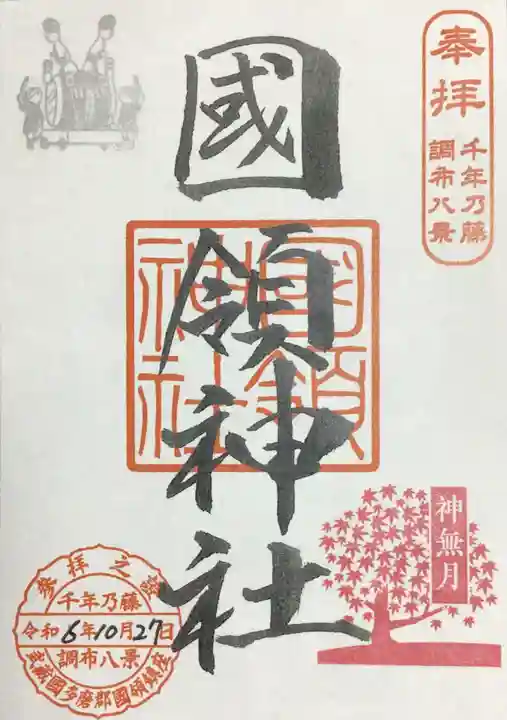 奉拝
千年乃藤
調布八景
國領神社
國領
神社
神無月
参拝之證
千年乃藤
令和6年10月27日
調布八景
武蔵國多磨郡國領鎮座